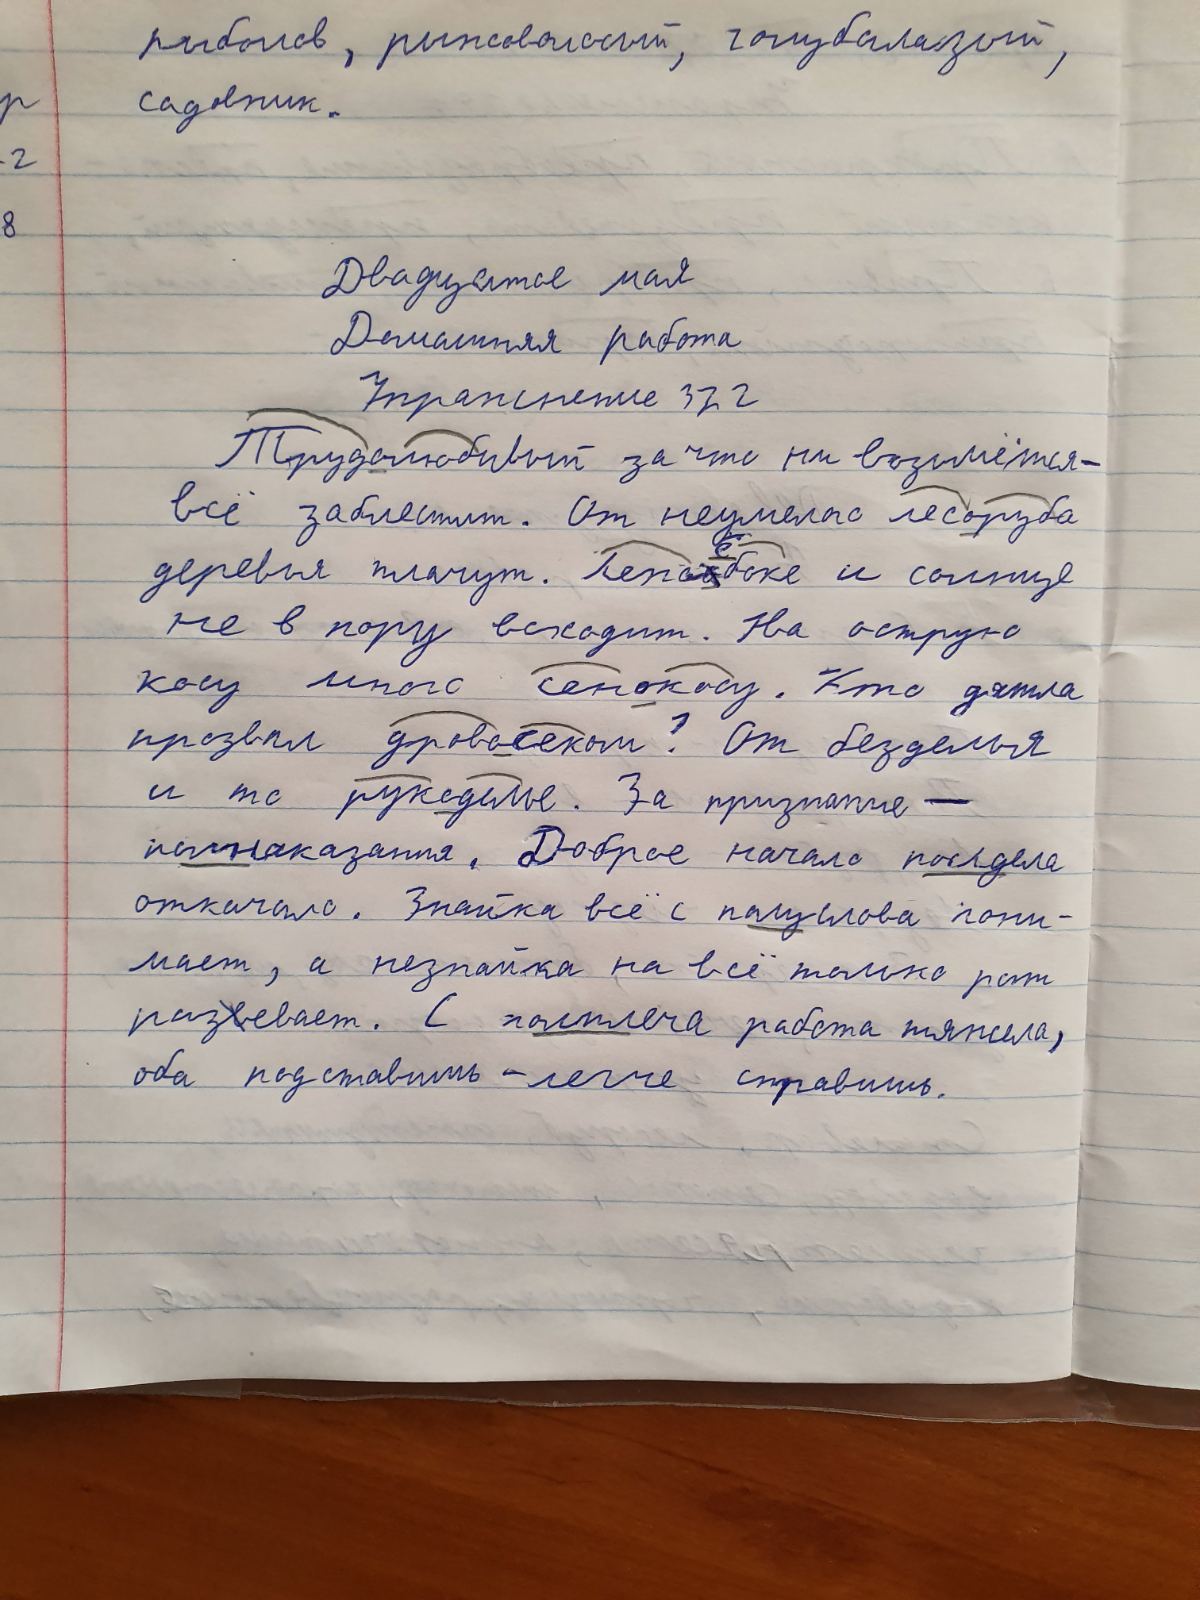 рыболов, рыжеволосый, голубоглазый,
р
садовник.
-2
8
Двадцатое мая
Домашняя работа
Упражнение 372
Трудолюбивый за что ни возьмётся-
всё заблестит. От неумелого лесоруба
деревья плачут. боке и солнце
не в пору всходит. На острую
косу много сенокосу. Кто дятла
прозвал дровосеком? От безделья
и то рукоделье. За признание —
полнаказания. Доброе начало полдела
откачало. Знайка всё с полуслова пони-
мает, а незнайка на всё только рот
разевает. С полплеча работа тяжела,
оба подставишь - легче справишь.